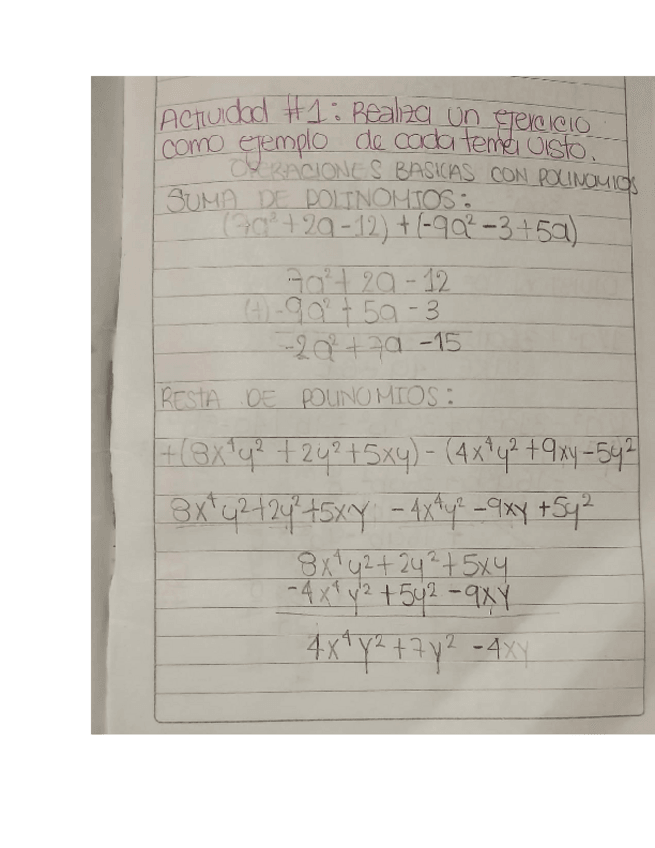 Actividad #1: Realiza un ejercicio
como ejemplo de cada tema visto.
OPERACIONES BASICAS CON POLINOMIOS
SUMA DE POLINOMIOS:
(7a² + 2a - 12) + (-9a² - 3 + 5a)
7a² + 2a - 12
(+) -9a² + 5a - 3
-2a² + 7a - 15
RESTA DE POLINOMIOS:
+(8x⁴y² + 2y² + 5xy) - (4x⁴y² + 9xy - 5y²
8x⁴y² + 2y² + 5xy - 4x⁴y² - 9xy + 5y²
8x⁴y² + 2y² + 5xy
-4x⁴y² + 5y² - 9xy
4x⁴y² + 7y² - 4xy